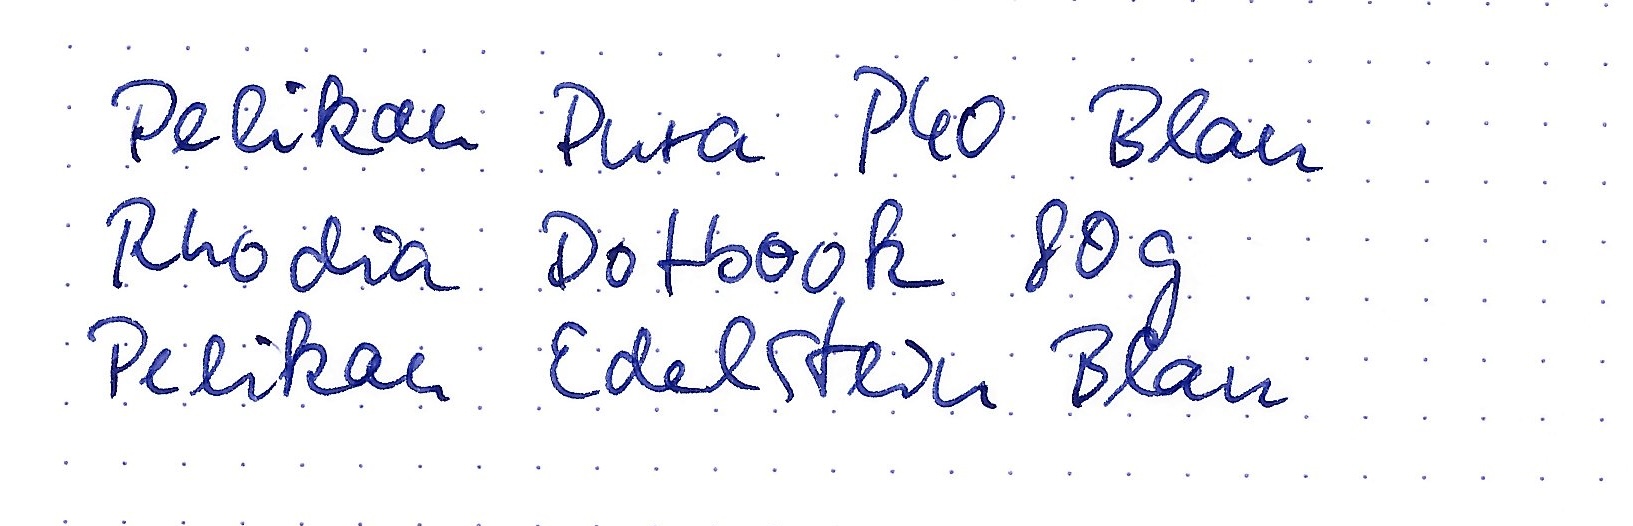 Pelikan Pura P40 Blau
Rhodia Dotbook 80g
Pelikan Edelstein Blau